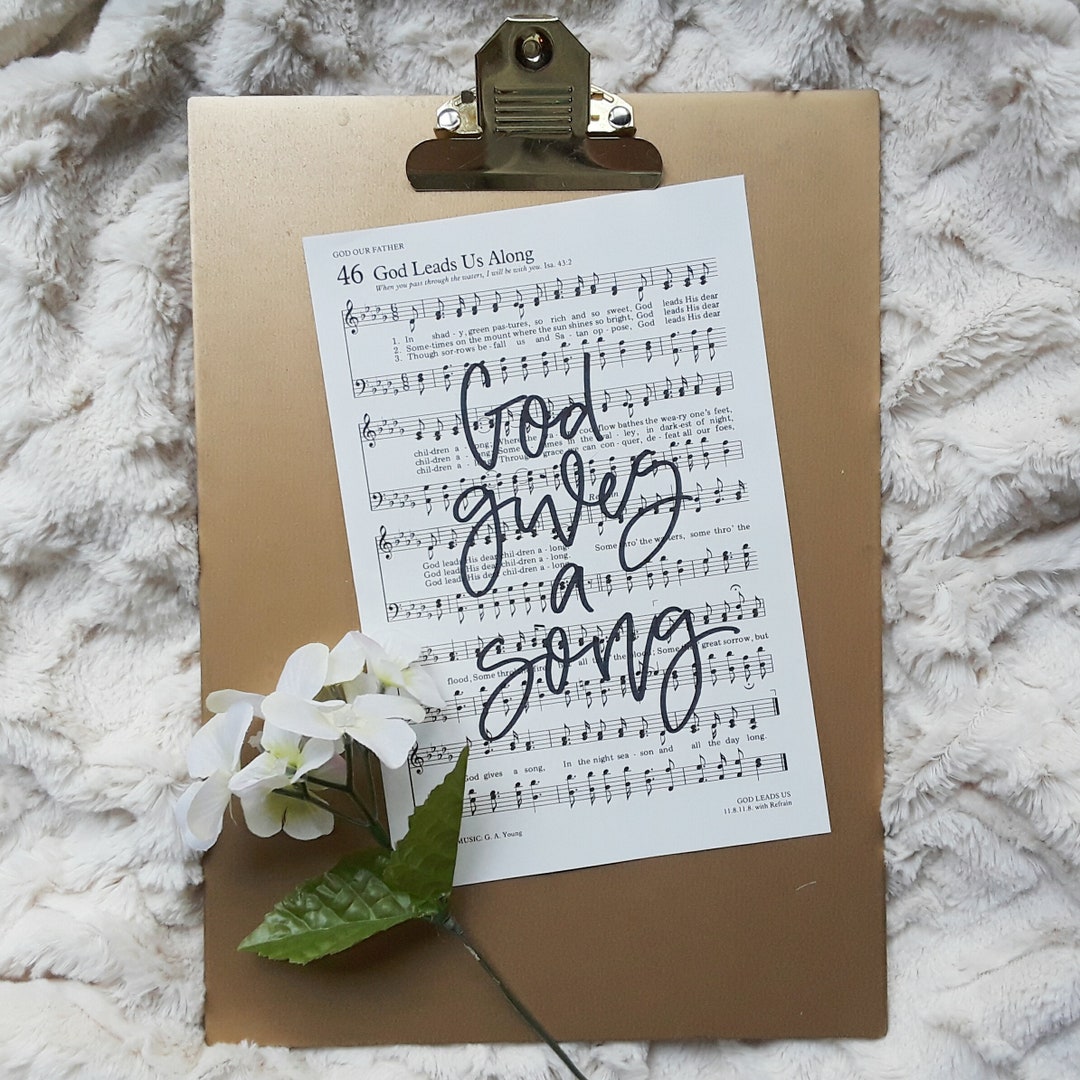 GOD OUR FATHER
46 God Leads Us Along
When you pass through the waters, I will be with you. Isa. 43:2
1. In shad - y, green pas - tures, so rich and so sweet, God leads His dear
2. Some - times on the mount where the sun shines so bright, God leads His dear
3. Though sor - rows be - fall us and Sa - tan op - pose, God leads His dear
God
chil - dren a - long; Where the cool flow bathes the wea - ry one's feet,
chil - dren a - long; Some - times in the val - ley, in dark - est of night,
chil - dren a - long; Through grace we can con - quer, de - feat all our foes,
gives
Refrain
God leads His dear chil - dren a - long. Some thro' the waters, some thro' the
God leads His dear chil - dren a - long.
God leads His dear chil - dren a - long.
a
song
flood, Some thro' the fire, all thro' the blood; Some great sorrow, but
God gives a song, In the night sea - son and all the day long.
GOD LEADS US
11.8.11.8. with Refrain
MUSIC: G. A. Young